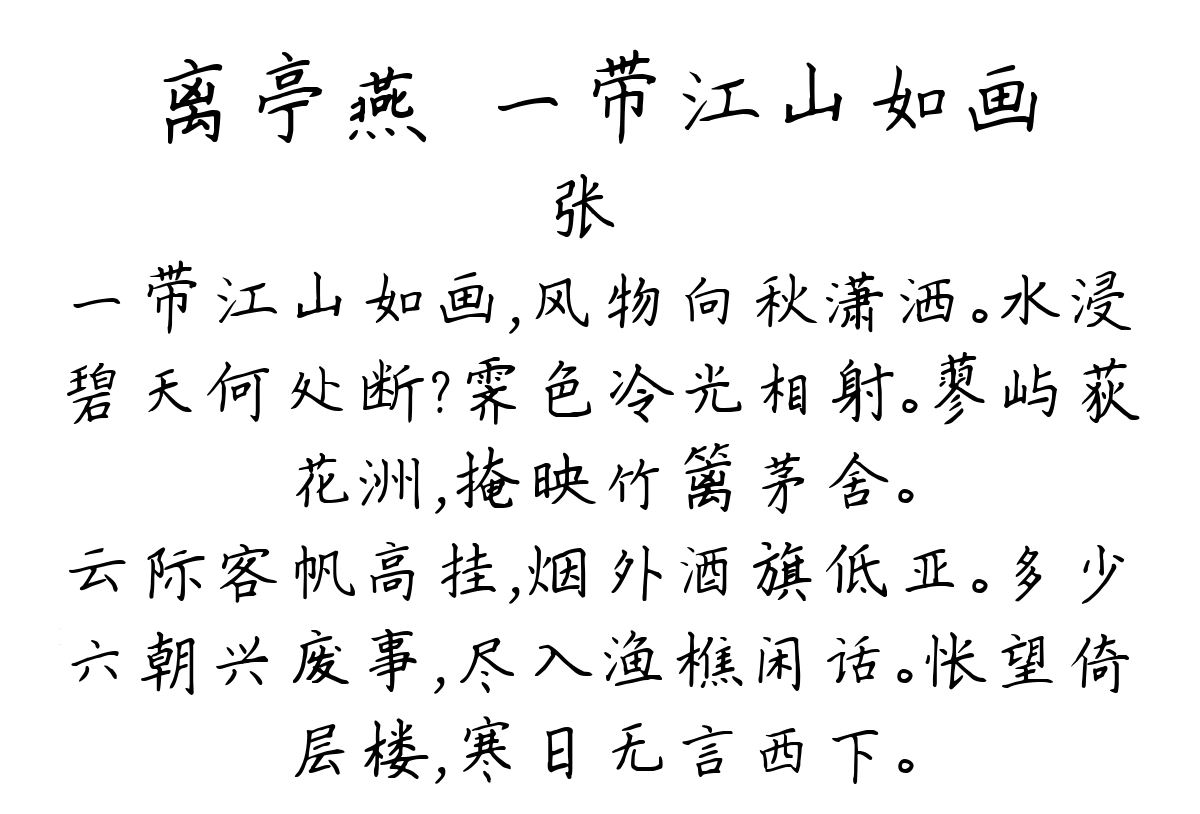 离亭燕 一带江山如画
张
一带江山如画,风物向秋潇洒。水浸
碧天何处断?霁色冷光相射。蓼屿荻
花洲,掩映竹篱茅舍。
云际客帆高挂,烟外酒旗低亚。多少
六朝兴废事,尽入渔樵闲话。怅望倚
层楼,寒日无言西下。